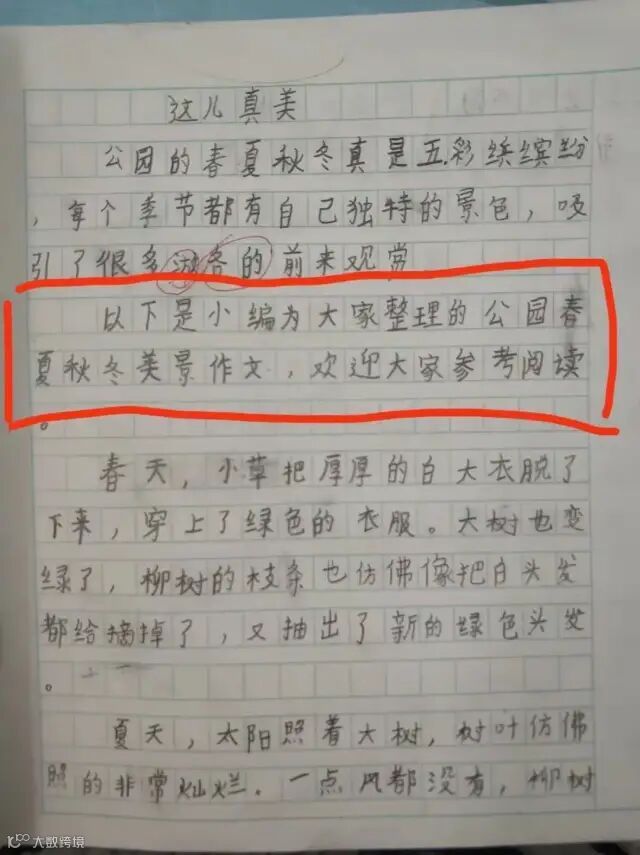 这儿真美
公园的春夏秋冬真是五彩缤缤纷
，每个季节都有自己独特的景色，吸
引了很多游客的前来观赏
以下是小编为大家整理的公园春
夏秋冬美景作文，欢迎大家参考阅读
。
春天，小草把厚厚的白大衣脱了
下来，穿上了绿色的衣服。大树也变
绿了，柳树的枝条也仿佛像把白头发
都给摘掉了，又抽出了新的绿色头发
。
夏天，太阳照着大树，树叶仿佛
照的非常灿烂。一点风都没有，柳树
大数跨境